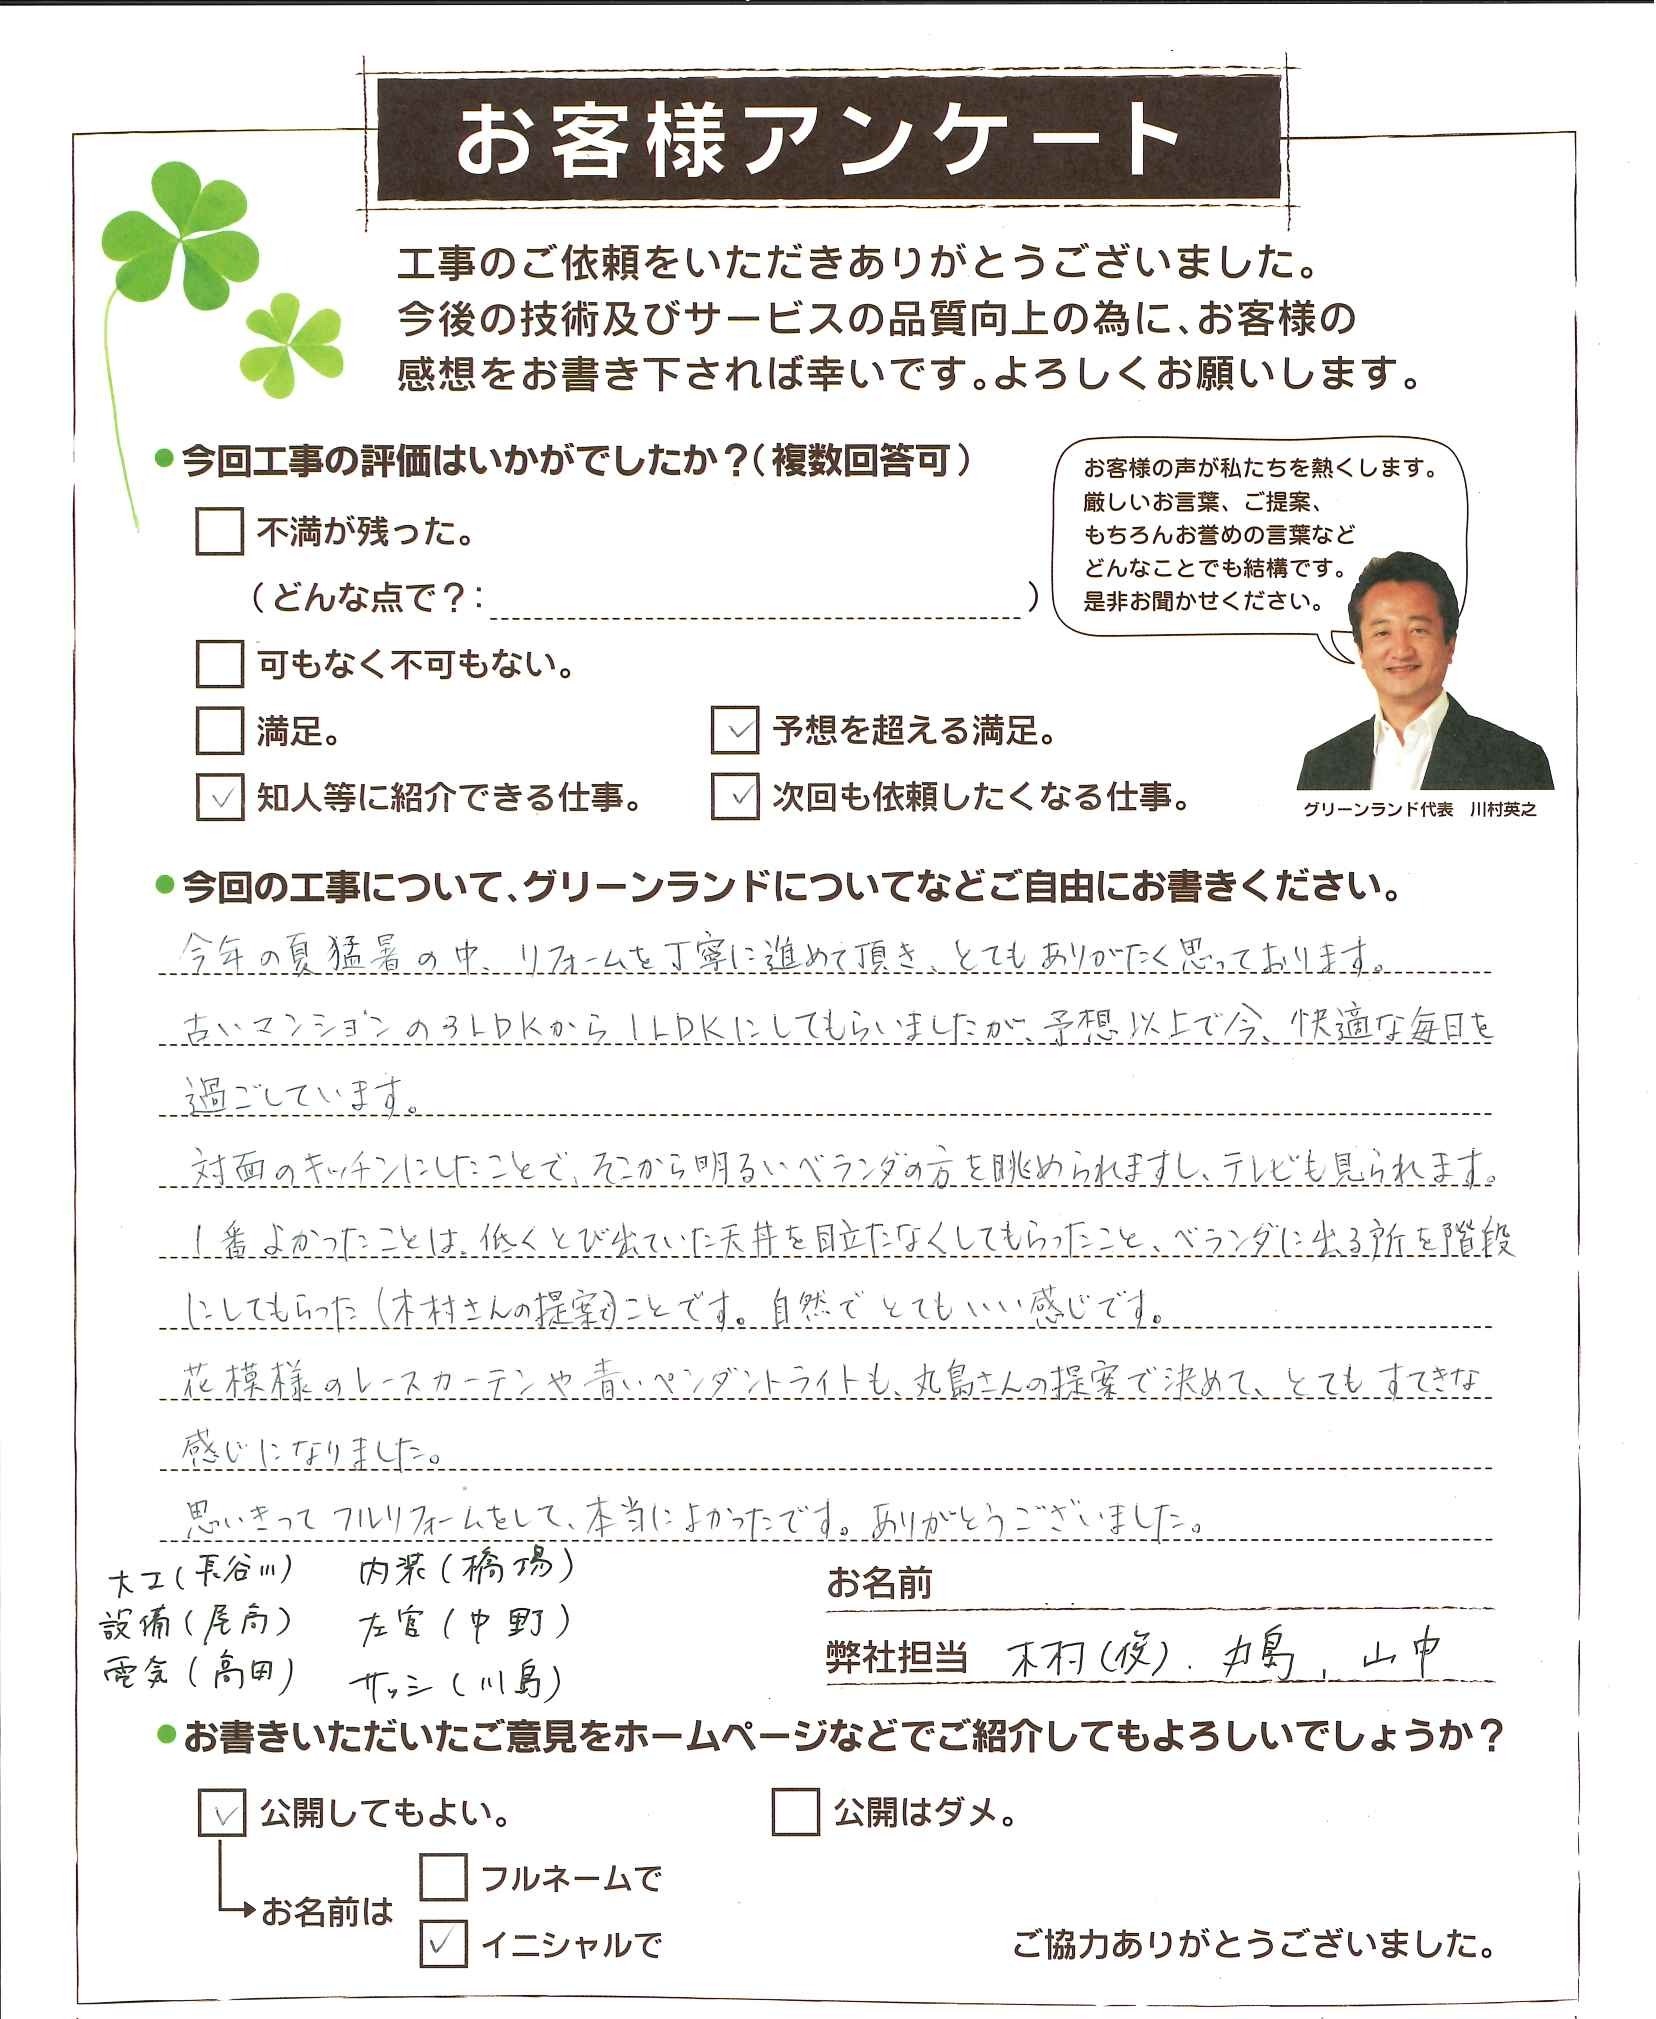 お客様アンケート
工事のご依頼をいただきありがとうございました。
今後の技術及びサービスの品質向上の為に、お客様の
感想をお書き下されば幸いです。よろしくお願いします。
●今回工事の評価はいかがでしたか？（複数回答可）
不満が残った。
（どんな点で？： ）
可もなく不可もない。
満足。
✓ 予想を超える満足。
✓ 知人等に紹介できる仕事。
✓ 次回も依頼したくなる仕事。
お客様の声が私たちを熱くします。
厳しいお言葉、ご提案、
もちろんお誉めの言葉など
どんなことでも結構です。
是非お聞かせください。
グリーンランド代表　川村英之
●今回の工事について、グリーンランドについてなどご自由にお書きください。
今年の夏猛暑の中、リフォームを丁寧に進めて頂き、とてもありがたく思っております。
古いマンションの3LDKから1LDKにしてもらいましたが、予想以上で今、快適な毎日を
過ごしています。
対面のキッチンにしたことで、そこから明るいベランダの方を眺められますし、テレビも見られます。
1番よかったことは、低くとび出ていた天井を目立たなくしてもらったこと、ベランダに出る所を階段
にしてもらった（木村さんの提案で）ことです。自然でとてもいい感じです。
花模様のレースカーテンや青いペンダントライトも、丸島さんの提案で決めて、とてもすてきな
感じになりました。
思いきってフルリフォームをして、本当によかったです。ありがとうございました。
大工（長谷川）　内装（橋場）
設備（尾向）　左官（中野）
電気（高田）　サッシ（川島）
お名前
弊社担当　木村（俊）．丸島．山中
●お書きいただいたご意見をホームページなどでご紹介してもよろしいでしょうか？
✓ 公開してもよい。
公開はダメ。
お名前は
フルネームで
✓ イニシャルで
ご協力ありがとうございました。